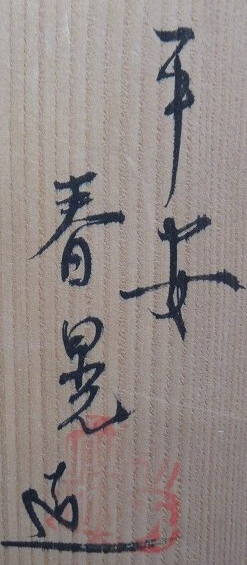 平安
春晃造